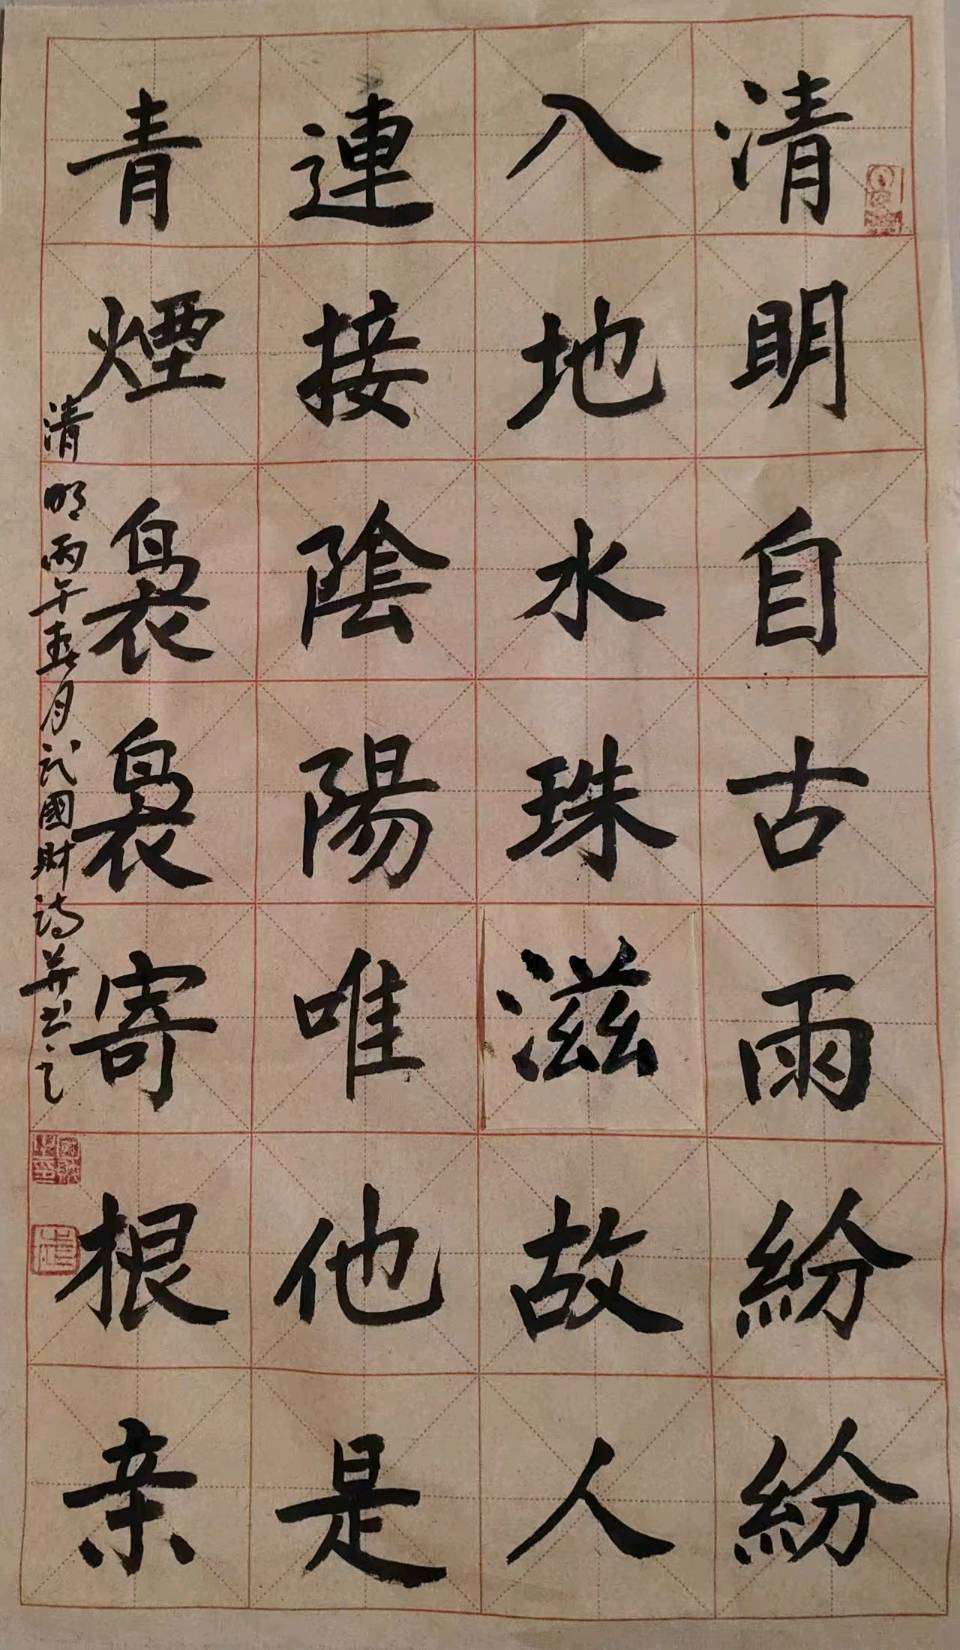 清明自古雨紛紛
入地水珠滋故人
連接陰陽唯他是
青煙袅袅寄根亲
清明丙午春月武國財詩并书之